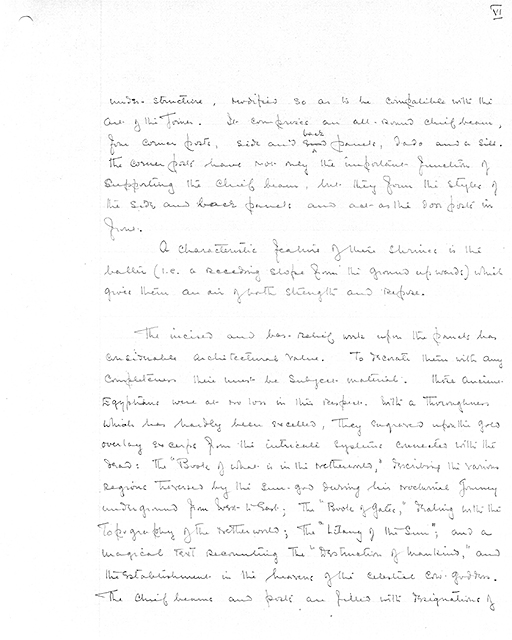 VI
under-structure, modified so as to be compatible with the
art of the Joiner. It comprises an all-round chief beam,
four corner posts, side and back panels, dado and a sill.
The corner posts have not only the important function of
supporting the chief beam, but they form the styles of
the side and back panels and act as the door posts in
front.
A characteristic feature of these shrines is the
batter (i.e. a receding slope from the ground upwards) which
gives them an air of both strength and repose.
The incised and bas-relief work upon the panels has
considerable architectural value. To decorate them with any
completeness there must be subject material. Those ancient
Egyptians were at no loss in this respect. With a thoroughness
which has hardly been excelled, they engraved upon the gold
overlay excerpts from the intricate systems connected with the
dead: the "Book of what is in the Netherworld," describing the various
regions traversed by the Sun-god during his nocturnal journey
underground from West to East; the "Book of Gates," dealing with the
topography of the Netherworld; the "Litany of the Sun"; and a
magical text recounting the "Destruction of Mankind," and
the establishment in the heavens of the celestial Cow-goddess.
The chief beams and posts are filled with designations of